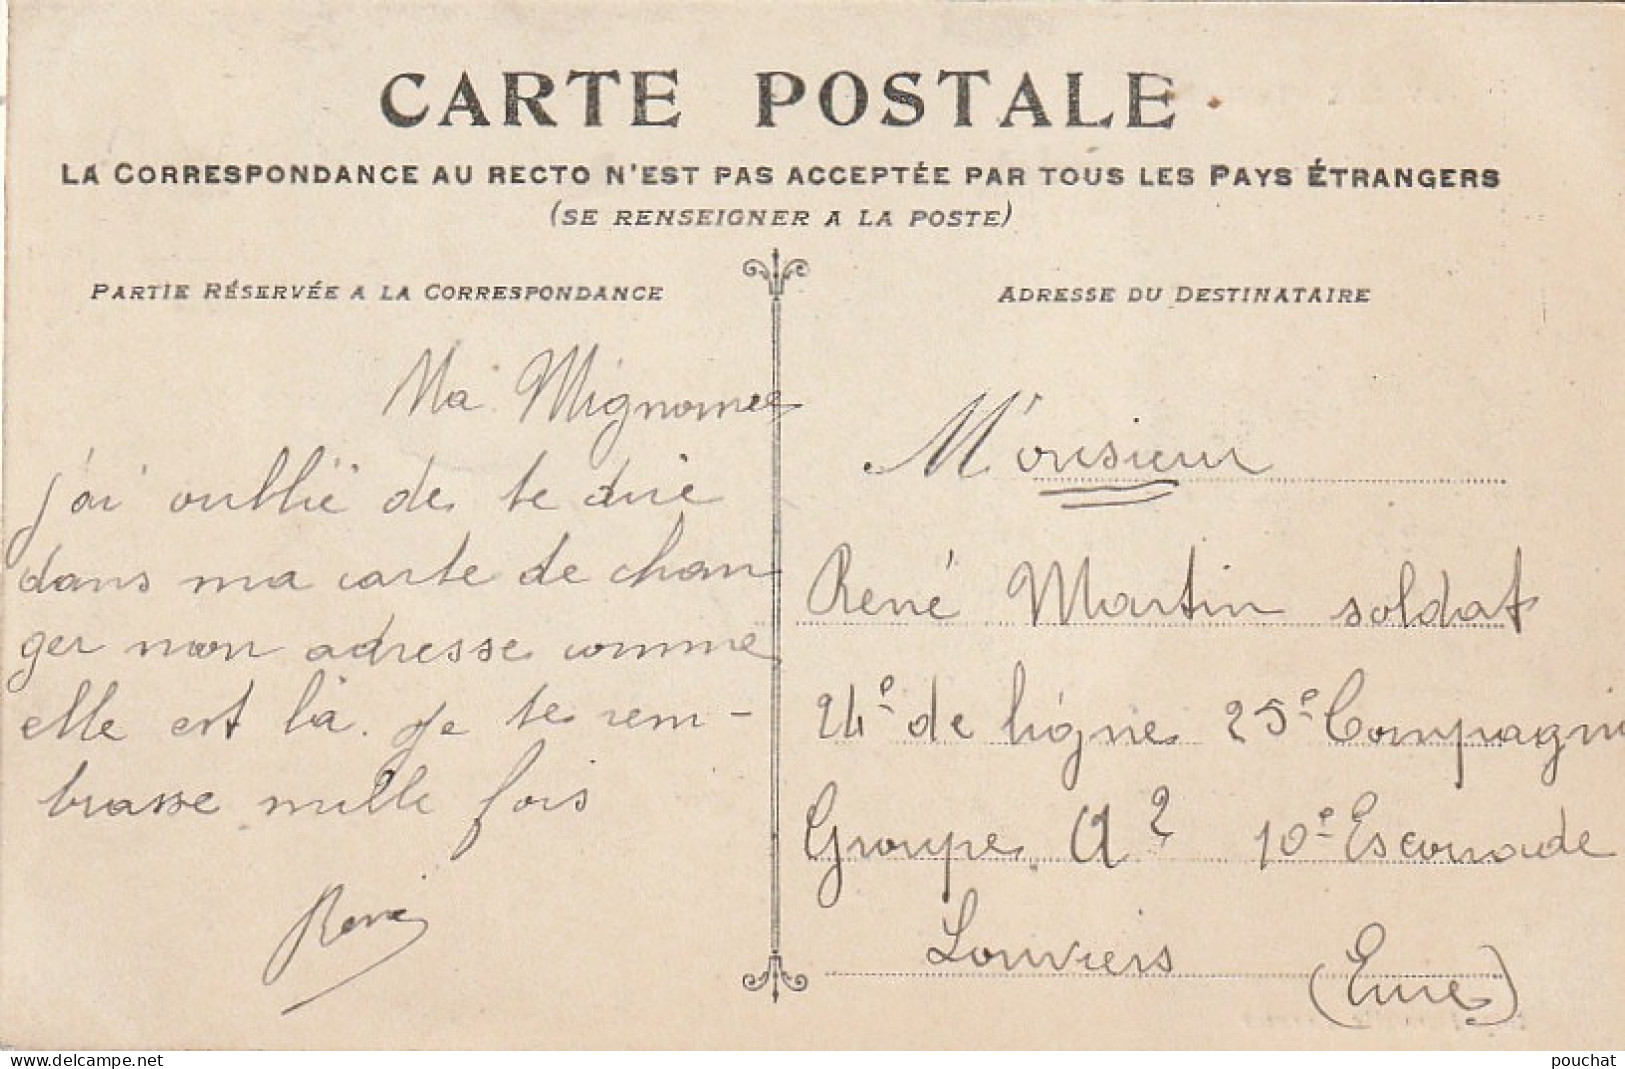 CARTE POSTALE
LA CORRESPONDANCE AU RECTO N'EST PAS ACCEPTÉE PAR TOUS LES PAYS ÉTRANGERS
(SE RENSEIGNER A LA POSTE)
PARTIE RÉSERVÉE A LA CORRESPONDANCE
Ma Mignonne
j'ai oublié de te dire
dans ma carte de chan
ger mon adresse comme
elle est là. Je te rem-
brasse mille fois
René
ADRESSE DU DESTINATAIRE
Monsieur
René Martin soldat
24e de ligne 25e Compagni
Groupe A2 10e Escouade
Louviers (Eure)
delcampe.net
pouchat